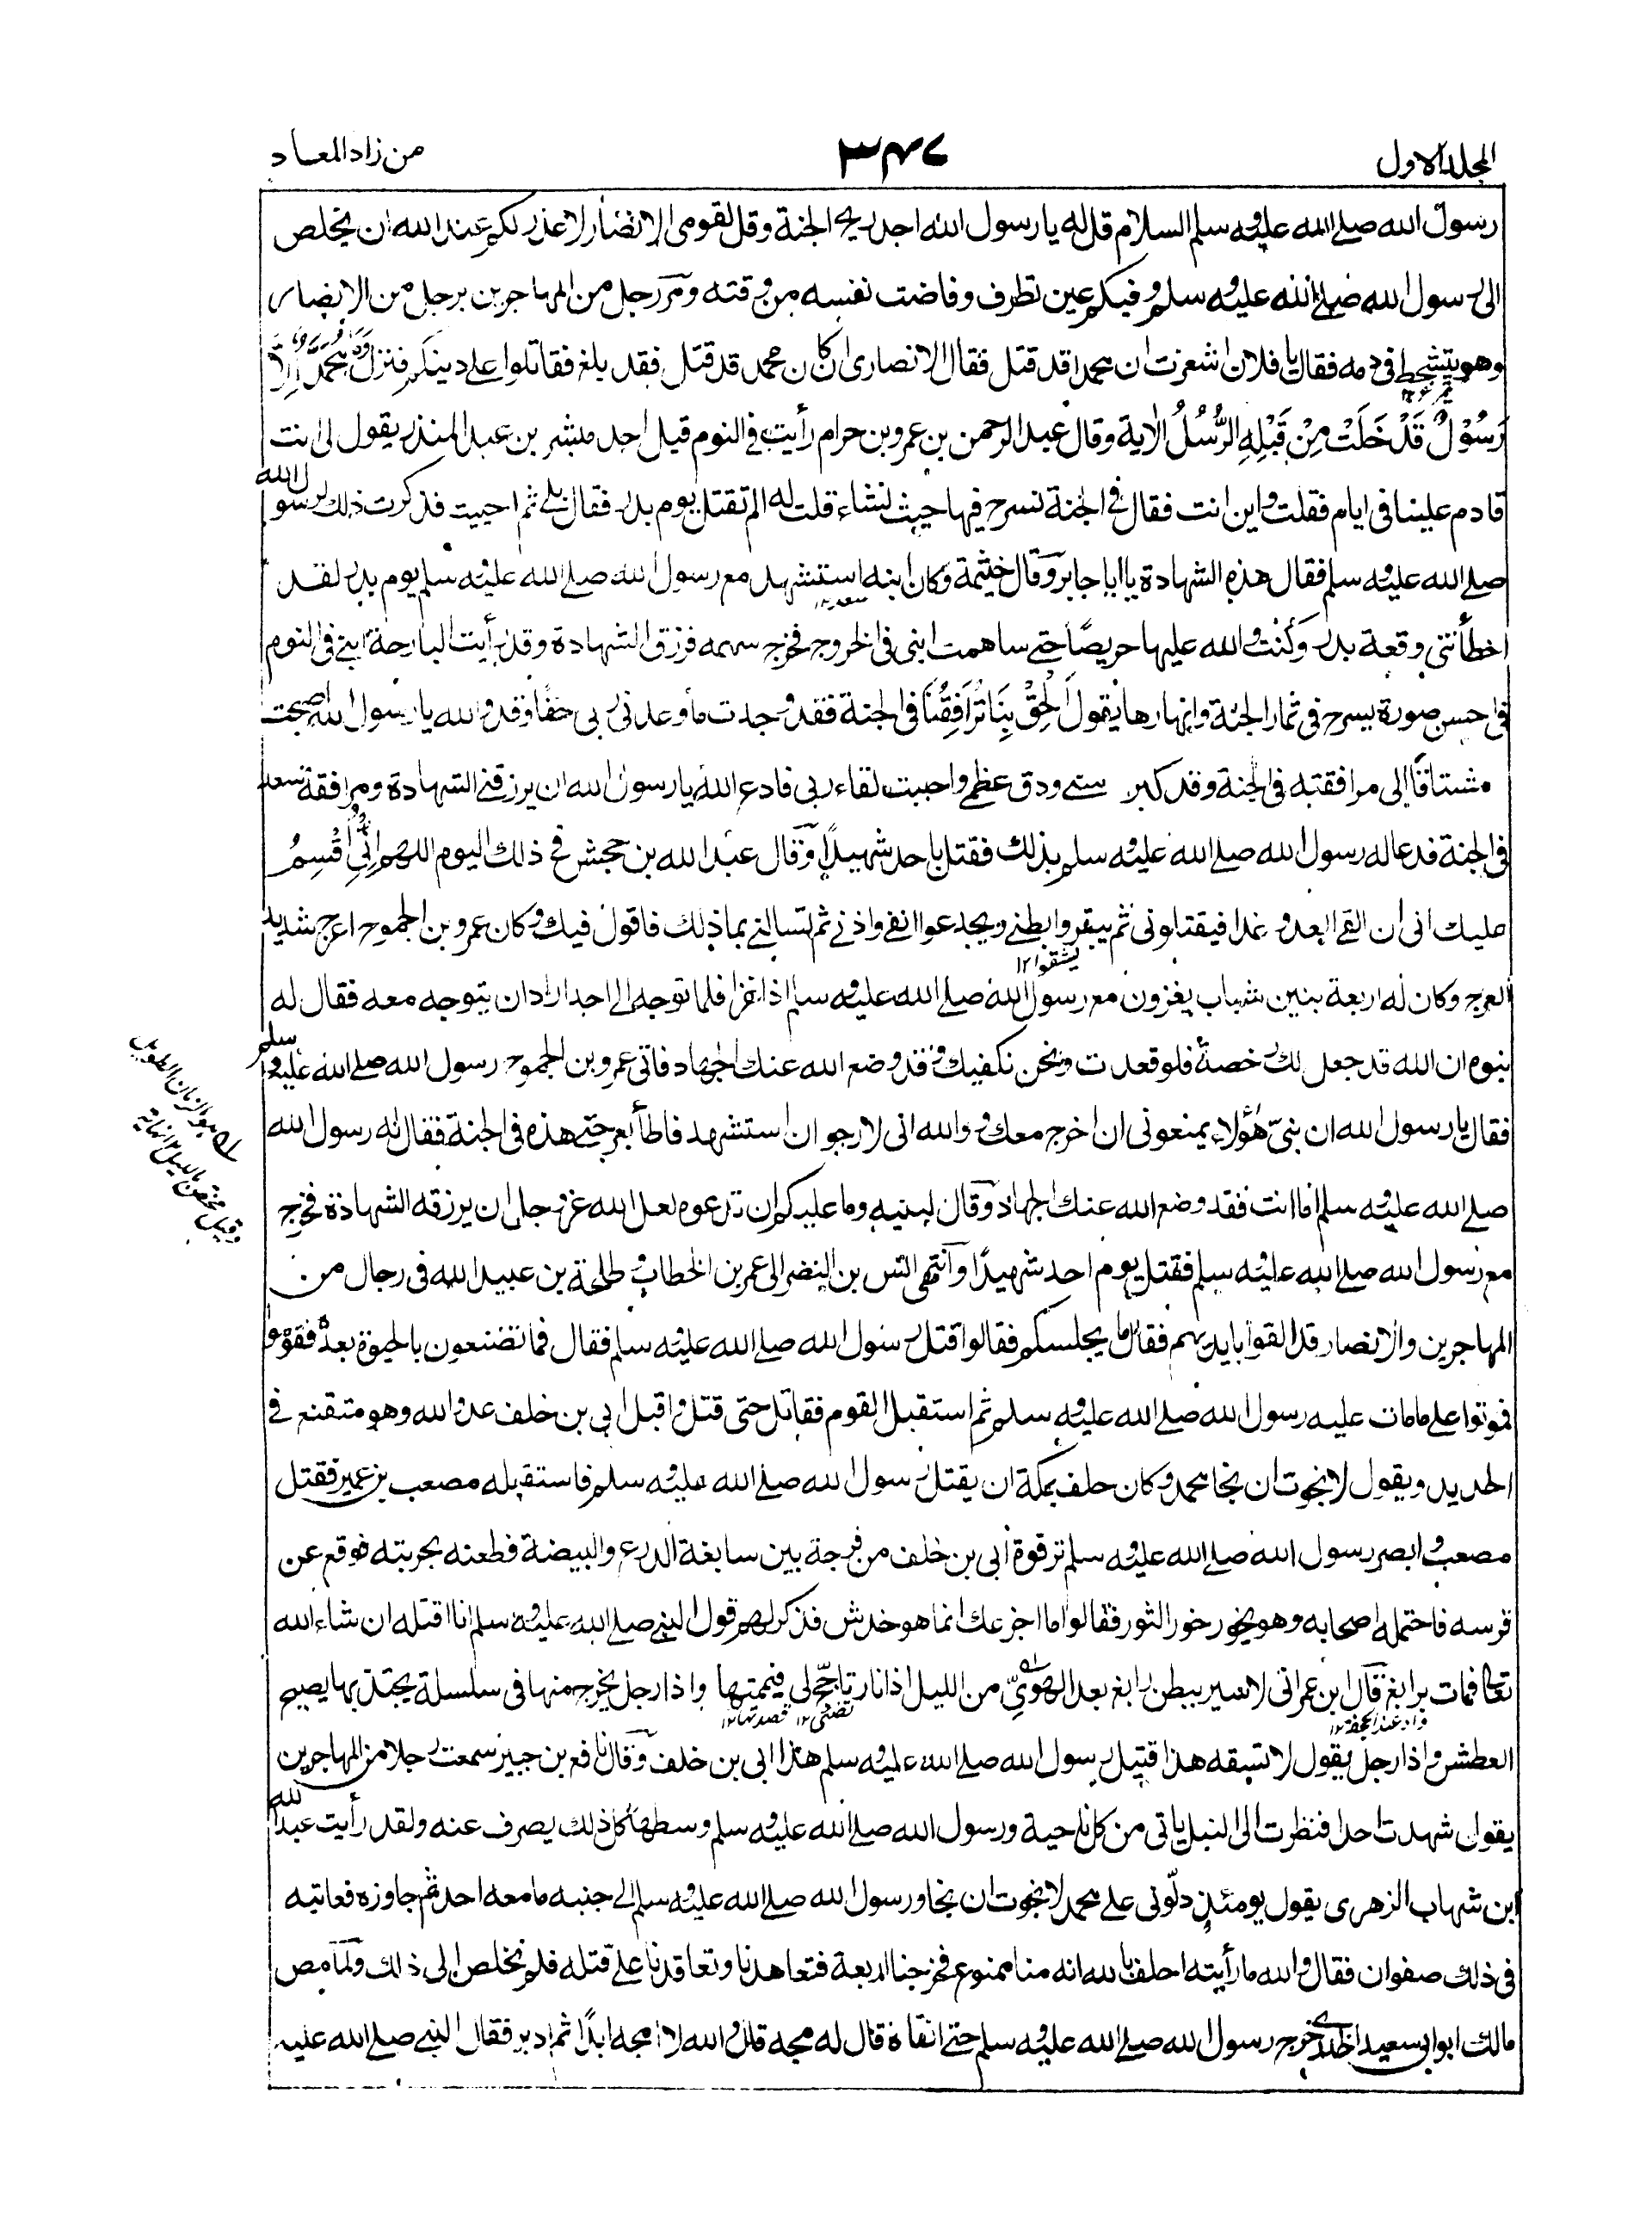 المجلد الاول ٣٤٧ من زاد المعاد
رسول الله صلے الله عليه وسلم السلام قل له يا رسول الله اجد ريح الجنة وقل لقومى الانصار لا عذر لكم عند الله ان يخلص
الى رسول الله صلے الله عليه وسلم وفيكم عين تطرف وفاضت نفسه من وقته ومر رجل من المهاجرين برجل من الانصار
وهو يتشحط فى دمه فقال يا فلان اشعرت ان محمدا قد قتل فقال الانصارى ان كان محمد قد قتل فقد بلغ فقاتلوا على دينكم فنزل وَمَا مُحَمَّدٌ اِلَّا
رَسُوْلٌ قَدْ خَلَتْ مِنْ قَبْلِهِ الرُّسُلُ الاية وقال عبد الرحمن بن عمرو بن حرام رأيت فى النوم قبل احد مبشر بن عبد المنذر يقول لى انت
قادم علينا فى ايام فقلت واين انت فقال فى الجنة نسرح فيها حيث نشاء قلت له الم تقتل يوم بدر فقال بلے ثم احييت فذكرت ذلك لرسول الله
صلے الله عليه وسلم فقال هذه الشهادة يا ابا جابر وقال خثيمة وكان ابنه استشهد مع رسول الله صلے الله عليه وسلم يوم بدر لقد
اخطأتنى وقعة بدر وكنت والله عليها حريصًا حتے ساهمت ابنى فى الخروج فخرج سهمه فرزق الشهادة وقد رأيت البارحة ابنے فى النوم
فى احسن صورة يسرح فى ثمار الجنة وانهارها يقول اَلْحِقْ بِنَا تُرَافِقُنَا فى الجنة فقد وجدت ما وعدنى ربى حقًا وقد والله يا رسول الله اصبحت
مشتاقًا الى مرافقته فى الجنة وقد كبر سنے ودق عظمے واحببت لقاء ربى فادع الله يا رسول الله ان يرزقنے الشهادة ومرافقة سعد
فى الجنة فدعا له رسول الله صلے الله عليه وسلم بذلك فقتل باحد شهيدًا وقال عبد الله بن جحش فى ذلك اليوم اللهم اِنِّى اُقْسِمُ
عليك انى ان القى العدو غدا فيقتلونى ثم يبقروا بطنے ويجدعوا انفے واذنے ثم تسالنے بما ذلك فاقول فيك وكان عمرو بن الجموح اعرج شديد
يشقوا ١٢
العرج وكان له اربعة بنين شباب يغزون مع رسول الله صلے الله عليه وسلم اذا غزا فلما توجه الے احد اراد ان يتوجه معه فقال له
بنوه ان الله قد جعل لك رخصة فلو قعدت ونحن نكفيك وقد وضع الله عنك الجهاد فاتى عمرو بن الجموح رسول الله صلے الله عليه وسلم
فقال يا رسول الله ان بنىّ هؤلاء يمنعونى ان اخرج معك ووالله انى لارجو ان استشهد فاطأ بعرجتى هذه فى الجنة فقال له رسول الله
صلے الله عليه وسلم اما انت فقد وضع الله عنك الجهاد وقال لبنيه وما عليكم ان تدعوه لعل الله عز وجل ان يرزقه الشهادة فخرج
مع رسول الله صلے الله عليه وسلم فقتل يوم احد شهيدًا وانتهى انس بن النضر الى عمر بن الخطاب و طلحة بن عبيد الله فى رجال من
المهاجرين والانصار قد القوا بايديهم فقال ما يجلسكم فقالوا قتل رسول الله صلے الله عليه وسلم فقال فما تصنعون بالحيوة بعده فقوموا
فموتوا على ما مات عليه رسول الله صلے الله عليه وسلم ثم استقبل القوم فقاتل حتى قتل واقبل ابى بن خلف عدو الله وهو متقنع فے
الحديد ويقول لا نجوت ان نجا محمد وكان حلف بمكة ان يقتل رسول الله صلے الله عليه وسلم فاستقبله مصعب بن عمير فقتل
مصعب وابصر رسول الله صلے الله عليه وسلم ترقوة ابى بن خلف من فرجة بين سابغة الدرع والبيضة فطعنه بحربته فوقع عن
فرسه فاحتمله اصحابه وهو يخور خور الثور فقالوا ما اجزعك انما هو خدش فذكر لهم قول النبے صلے الله عليه وسلم انا اقتله ان شاء الله
تعالى فمات برابغ قال ابن عمر انى لاسير ببطن رابغ بعد الهوىّ من الليل اذا نار تاجّج لى فيممتها واذا رجل يخرج منها فى سلسلة يجتذبها يصيح
واد عند الجحفة ١٢ قصدتها ١٢
العطش واذا رجل يقول لا تسقه هذا قتيل رسول الله صلے الله عليه وسلم هذا ابى بن خلف وقال نافع بن جبير سمعت رجلا من المهاجرين
يقول شهدت احدا فنظرت الى النبل ياتى من كل ناحية ورسول الله صلے الله عليه وسلم وسطها كل ذلك يصرف عنه ولقد رأيت عبد الله
ابن شهاب الزهرى يقول يومئذ دلّونى على محمد لا نجوت ان نجا ورسول الله صلے الله عليه وسلم الے جنبه ما معه احد ثم جاوزه فعاتبه
فى ذلك صفوان فقال والله ما رأيته احلف بالله انه منا ممنوع فخرجنا اربعة فتعاهدنا وتعاقدنا على قتله فلم نخلص الى ذلك ولما مص
مالك ابو ابى سعيد الخدرى جرح رسول الله صلے الله عليه وسلم حتے انقاه قال له مجه قال والله لا امجه ابدًا ثم ادبر فقال النبے صلے الله عليه
هو الزمان الطويل
وقيل مختص بالليل ١٢ نهاية